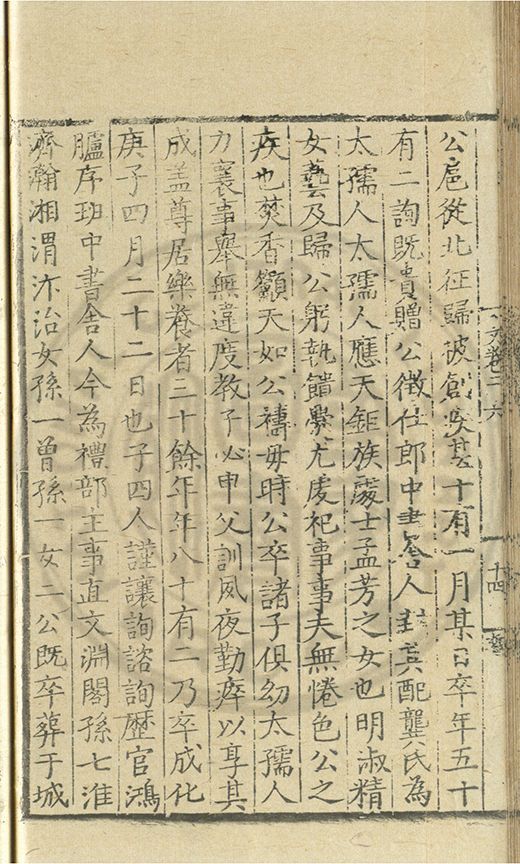 公扈從北征歸被創以其十有一月某日卒年五十
有二詢既貴贈公徵仕郎中書舍人封其配龔氏為
太孺人太孺人應天鉅族處士孟芳之女也明淑精
女藝及歸公躬執饎爨尤虔祀事事夫無惓色公之
疾也焚香籲天如公禱毋時公卒諸子俱幼太孺人
力襄事舉無違度教子必申父訓夙夜勤瘁以享其
成盖尊居樂養者三十餘年年八十有二乃卒成化
庚子四月二十二日也子四人謹讓詢諮詢歷官鴻
臚序班中書舍人今為禮部主事直文淵閣孫七淮
濟瀚湘渭沂治女孫一曾孫一女二公既卒葬于城
文卷二六
十四